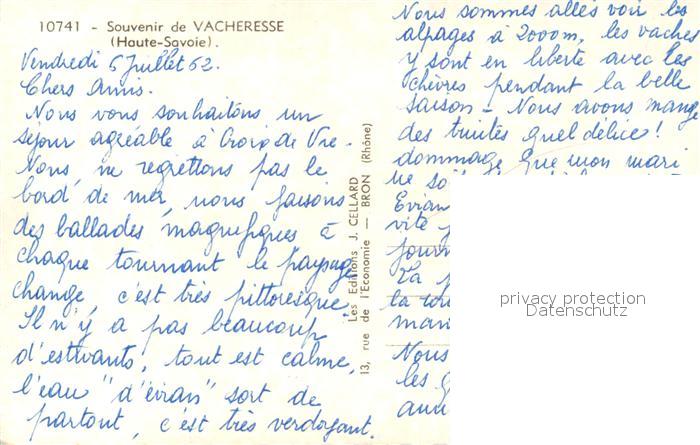 10741 - Souvenir de VACHERESSE
(Haute-Savoie).
Vendredi 6 Juillet 62.
Chers Amis.
Nous vous souhaitons un
séjour agréable à Croix de Vie.
Nous, ne regrettons pas le
bord de mer, nous faisons
des ballades magnifiques à
chaque tournant le paysage
change, c'est très pittoresque.
Il n'y a pas beaucoup
d'estivants, tout est calme,
l'eau "d'évian" sort de
partout, c'est très verdoyant.
Les Editions J. CELLARD
13, rue de l'Economie — BRON (Rhône)
Nous sommes allés voir les
alpages à 2000m, les vaches
y sont en liberté avec les
chèvres pendant la belle
saison - Nous avons mangé
des truites quel délice!
dommage que mon mari
ne
Evian
vite
La
la
mari
Nous
les
privacy protection
Datenschutz